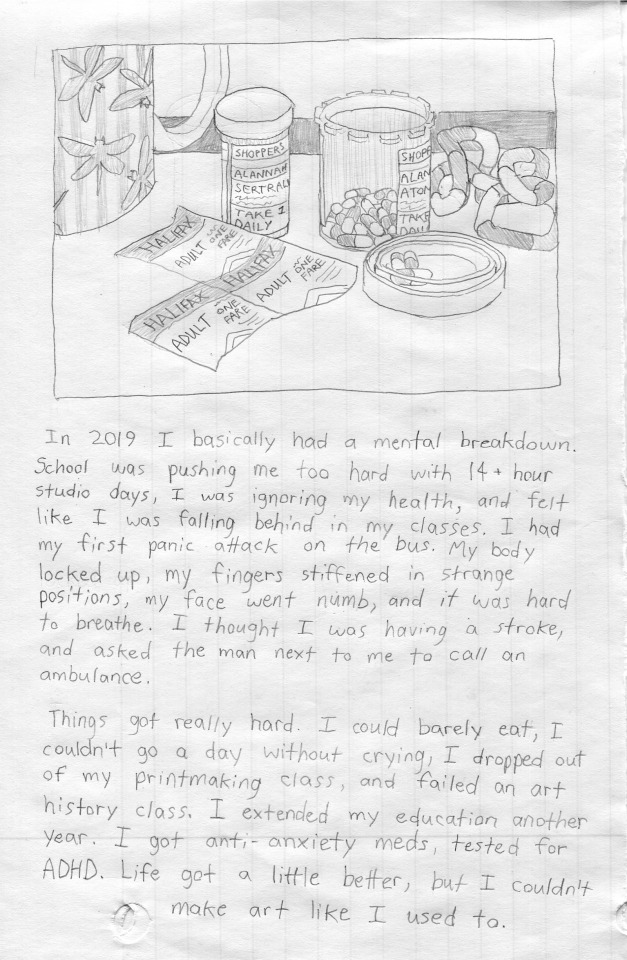 SHOPPERS
ALANNAH
SERTRALI
TAKE 1
DAILY
SHOPP
ALAN
ATOM
TAKE
DAIL
HALIFAX
ADULT ONE FARE
HALIFAX
ADULT ONE FARE
HALIFAX
ADULT ONE FARE
In 2019 I basically had a mental breakdown.
School was pushing me too hard with 14+ hour
studio days, I was ignoring my health, and felt
like I was falling behind in my classes. I had
my first panic attack on the bus. My body
locked up, my fingers stiffened in strange
positions, my face went numb, and it was hard
to breathe. I thought I was having a stroke,
and asked the man next to me to call an
ambulance.
Things got really hard. I could barely eat, I
couldn't go a day without crying, I dropped out
of my printmaking class, and failed an art
history class. I extended my education another
year. I got anti-anxiety meds, tested for
ADHD. Life got a little better, but I couldn't
make art like I used to.